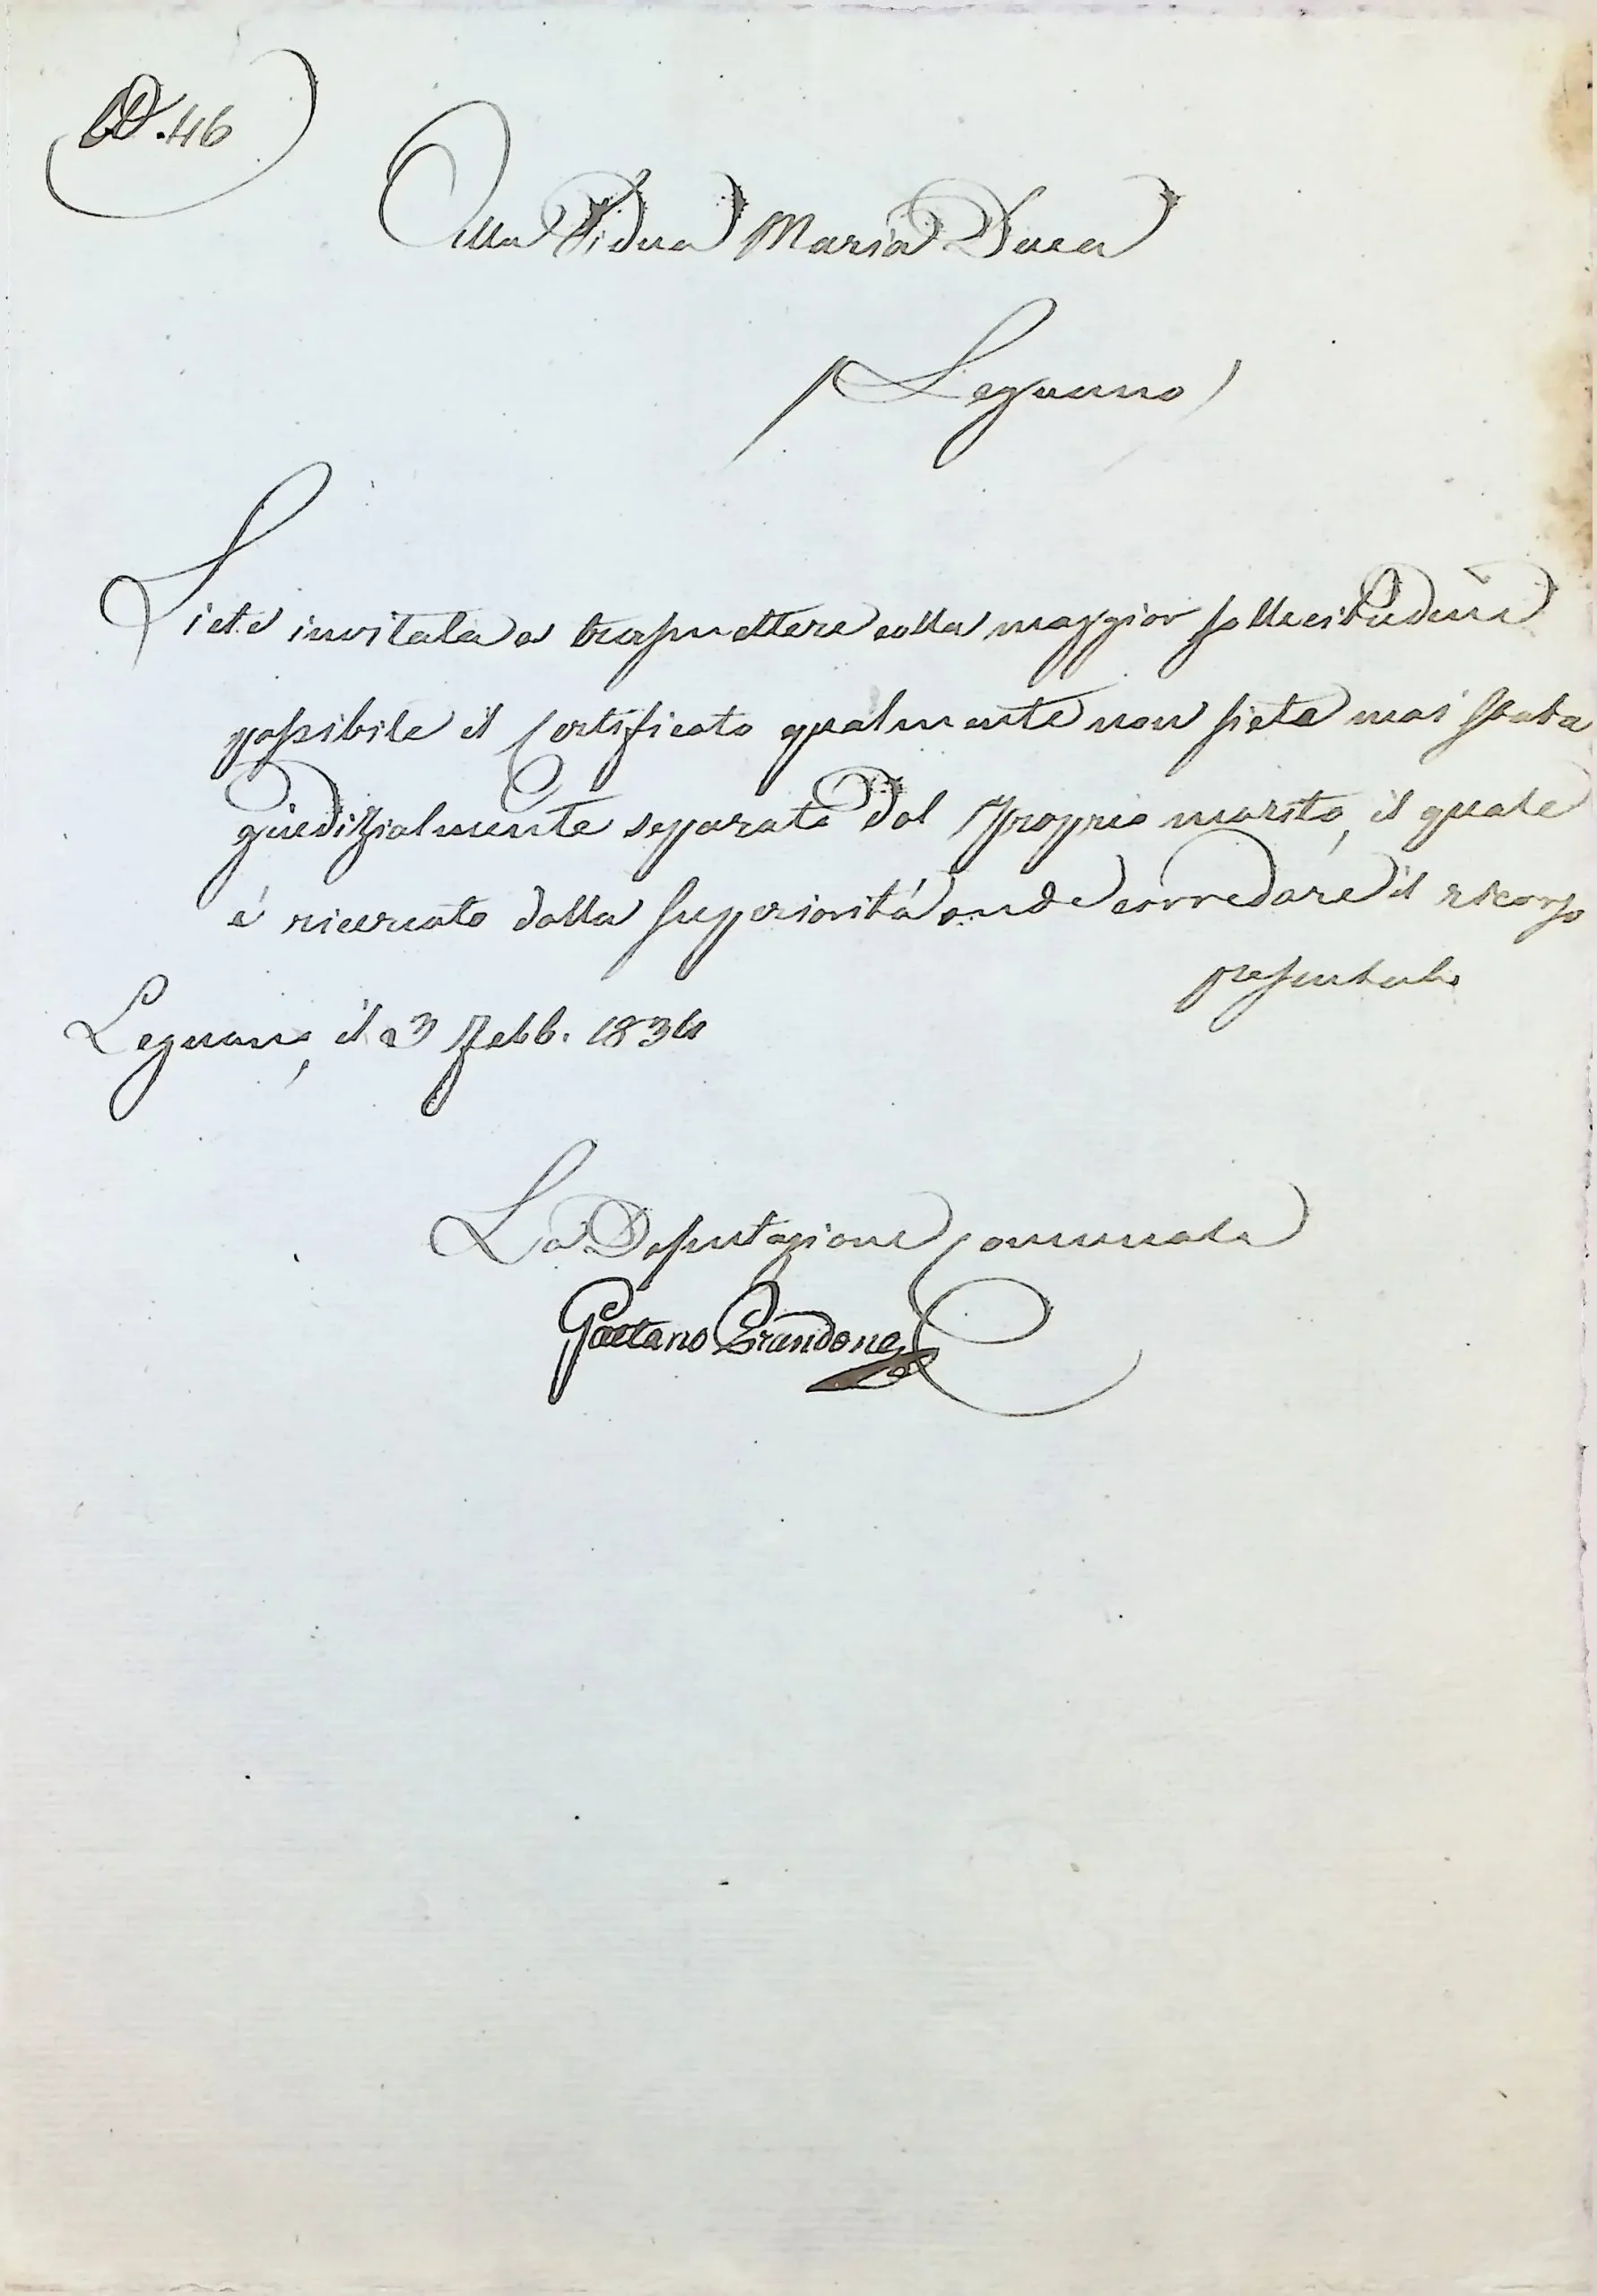 N.º 46
Alla Vidua Maria Duca
Legnano
Siete invitata a trasmettere colla maggior sollecitudine
possibile il Certificato qualmente non siete mai stata
giudizialmente separata dal proprio marito, il quale
é ricercato dalla Superiorità onde corredare il ricorso
presentato
Legnano, il 23 Febb. 1834
La Deputazione Comunale
Gaetano Brandone